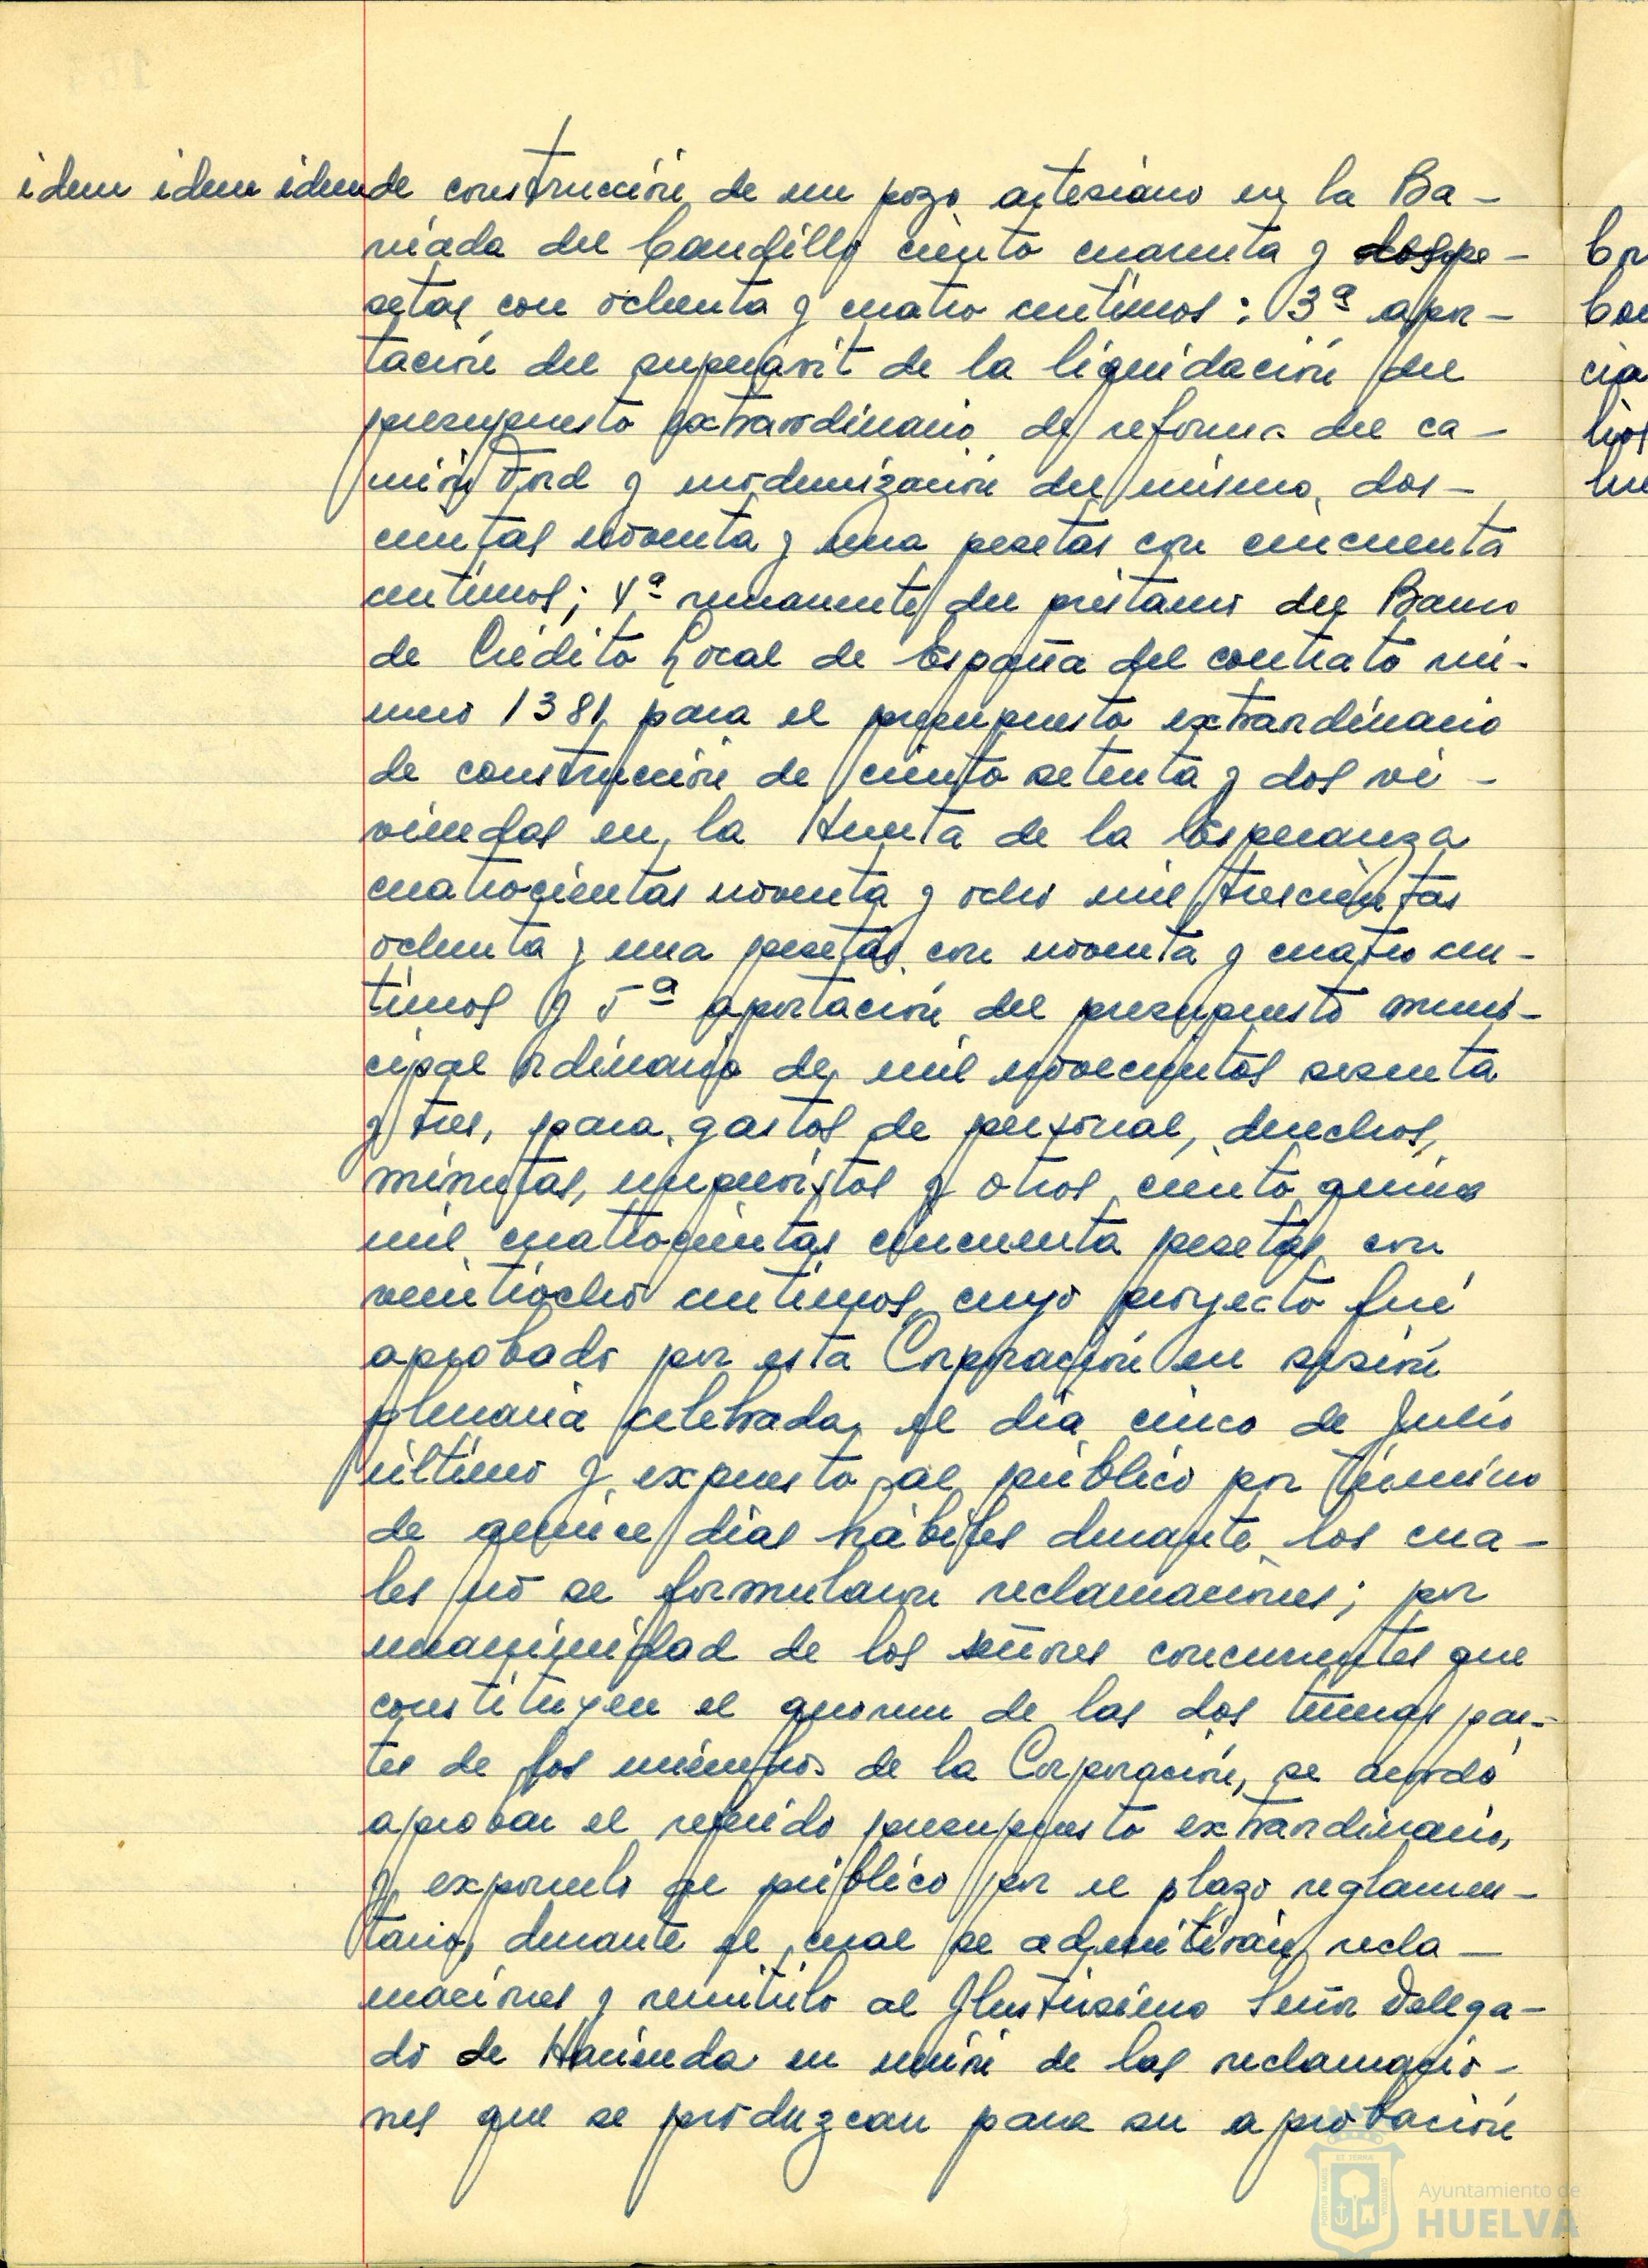 idem idem idem de construcción de un pozo artesiano en la Ba-
riada del Caudillo ciento cuarenta y dos pe-
setas con ochenta y cuatro centimos: 3ª apor-
tación del superavit de la liquidación del
presupuesto extraordinario de reforma del ca-
mión Ford y modernización del mismo, dos-
cientas noventa y una pesetas con cincuenta
centimos; 4ª remanente del préstamo del Banco
de Crédito Local de España del contrato nú-
mero 1381 para el presupuesto extraordinario
de construcción de ciento setenta y dos vi-
viendas en la Huerta de la Esperanza
cuatrocientas noventa y ocho mil trescientas
ochenta y una pesetas con noventa y cuatro cen-
timos y 5ª aportación del presupuesto muni-
cipal ordinario de mil novecientos sesenta
y tres, para gastos de personal, derechos,
minutas, imprevistos y otros ciento quince
mil cuatrocientas cincuenta pesetas con
veintiocho centimos, cuyo proyecto fué
aprobado por esta Corporación en sesión
plenaria celebrada el dia cinco de Julio
último y expuesto al público por término
de quince dias hábiles durante los cua-
les nó se formularon reclamaciones; por
unanimidad de los señores concurrentes que
constituyen el quorum de las dos terceras par-
tes de los miembros de la Corporación, se acordó
aprobar el referido presupuesto extraordinario,
y exponerlo al público por el plazo reglamen-
tario, durante el cual se admitirán recla-
maciones y remitirlo al Ilustrisimo Señor Delega-
do de Hacienda en unión de las reclamacio-
nes que se produzcan para su aprobación
cia
Ayuntamiento de
HUELVA